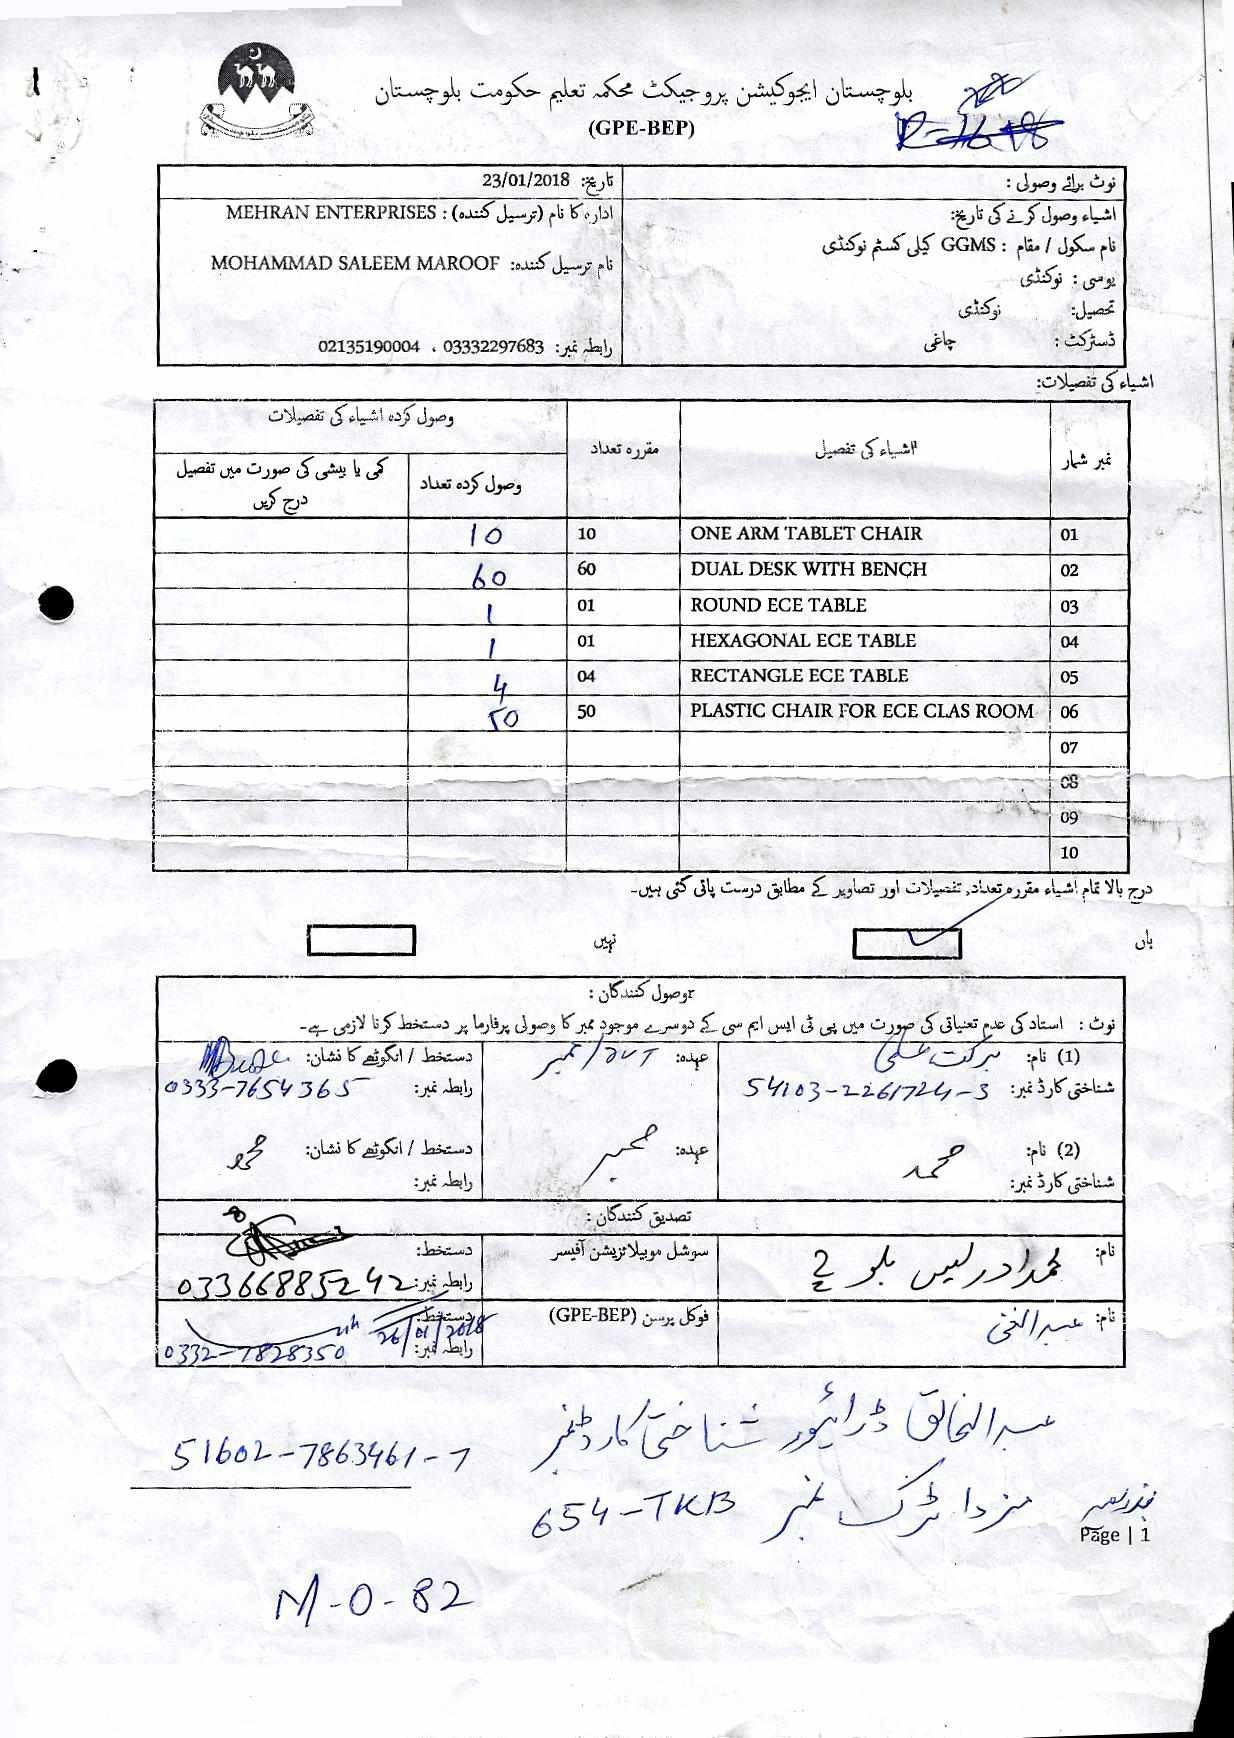 بلوچستان ایجوکیشن پروجیکٹ محکمہ تعلیم حکومت بلوچستان
(GPE-BEP)
نوٹ برائے وصولی :
تاریخ: 23/01/2018
اشیاء وصول کرنے کی تاریخ:
نام سکول / مقام : GGMS کیلی کسٹم نوکنڈی
یوسی : نوکنڈی
تحصیل: نوکنڈی
ڈسٹرکٹ : چاغی
ادارہ کا نام (ترسیل کنندہ) : MEHRAN ENTERPRISES
نام ترسیل کنندہ: MOHAMMAD SALEEM MAROOF
رابطہ نمبر: 03332297683 ، 02135190004
اشیاء کی تفصیلات:
نمبر شمار اشیاء کی تفصیل مقررہ تعداد وصول کردہ اشیاء کی تفصیلات
وصول کردہ تعداد کمی یا بیشی کی صورت میں تفصیل درج کریں
01 ONE ARM TABLET CHAIR 10 10
02 DUAL DESK WITH BENCH 60 60
03 ROUND ECE TABLE 01 1
04 HEXAGONAL ECE TABLE 01 1
05 RECTANGLE ECE TABLE 04 4
06 PLASTIC CHAIR FOR ECE CLAS ROOM 50 50
07
08
09
10
درج بالا تمام اشیاء مقررہ تعداد, تفصیلات اور تصاویر کے مطابق درست پائی گئی ہیں۔
ہاں نہیں
وصول کنندگان :
نوٹ : استاد کی عدم تعنیاتی کی صورت میں پی ٹی ایس ایم سی کے دوسرے موجود ممبر کا وصولی پرفارما پر دستخط کرنا لازمی ہے۔
(1) نام: برکت علی عہدہ: دستخط / انگوٹھے کا نشان:
شناختی کارڈ نمبر: 54103-2261724-3 رابطہ نمبر: 0333-7654365
(2) نام: محمد عہدہ: ممبر دستخط / انگوٹھے کا نشان: محمد
شناختی کارڈ نمبر: رابطہ نمبر:
تصدیق کنندگان :
نام: محمد ادریس بلوچ سوشل موبیلائزیشن آفیسر دستخط:
رابطہ نمبر: 03366885242
نام: عبدالغنی فوکل پرسن (GPE-BEP) دستخط: 26/01/2018
رابطہ نمبر: 0332-7828350
عبدالخالق ڈرائیور شناختی کارڈ نمبر 51602-7863461-7
بذریعہ مزدا ٹرک نمبر 654-TKB
Page | 1
M-0-82